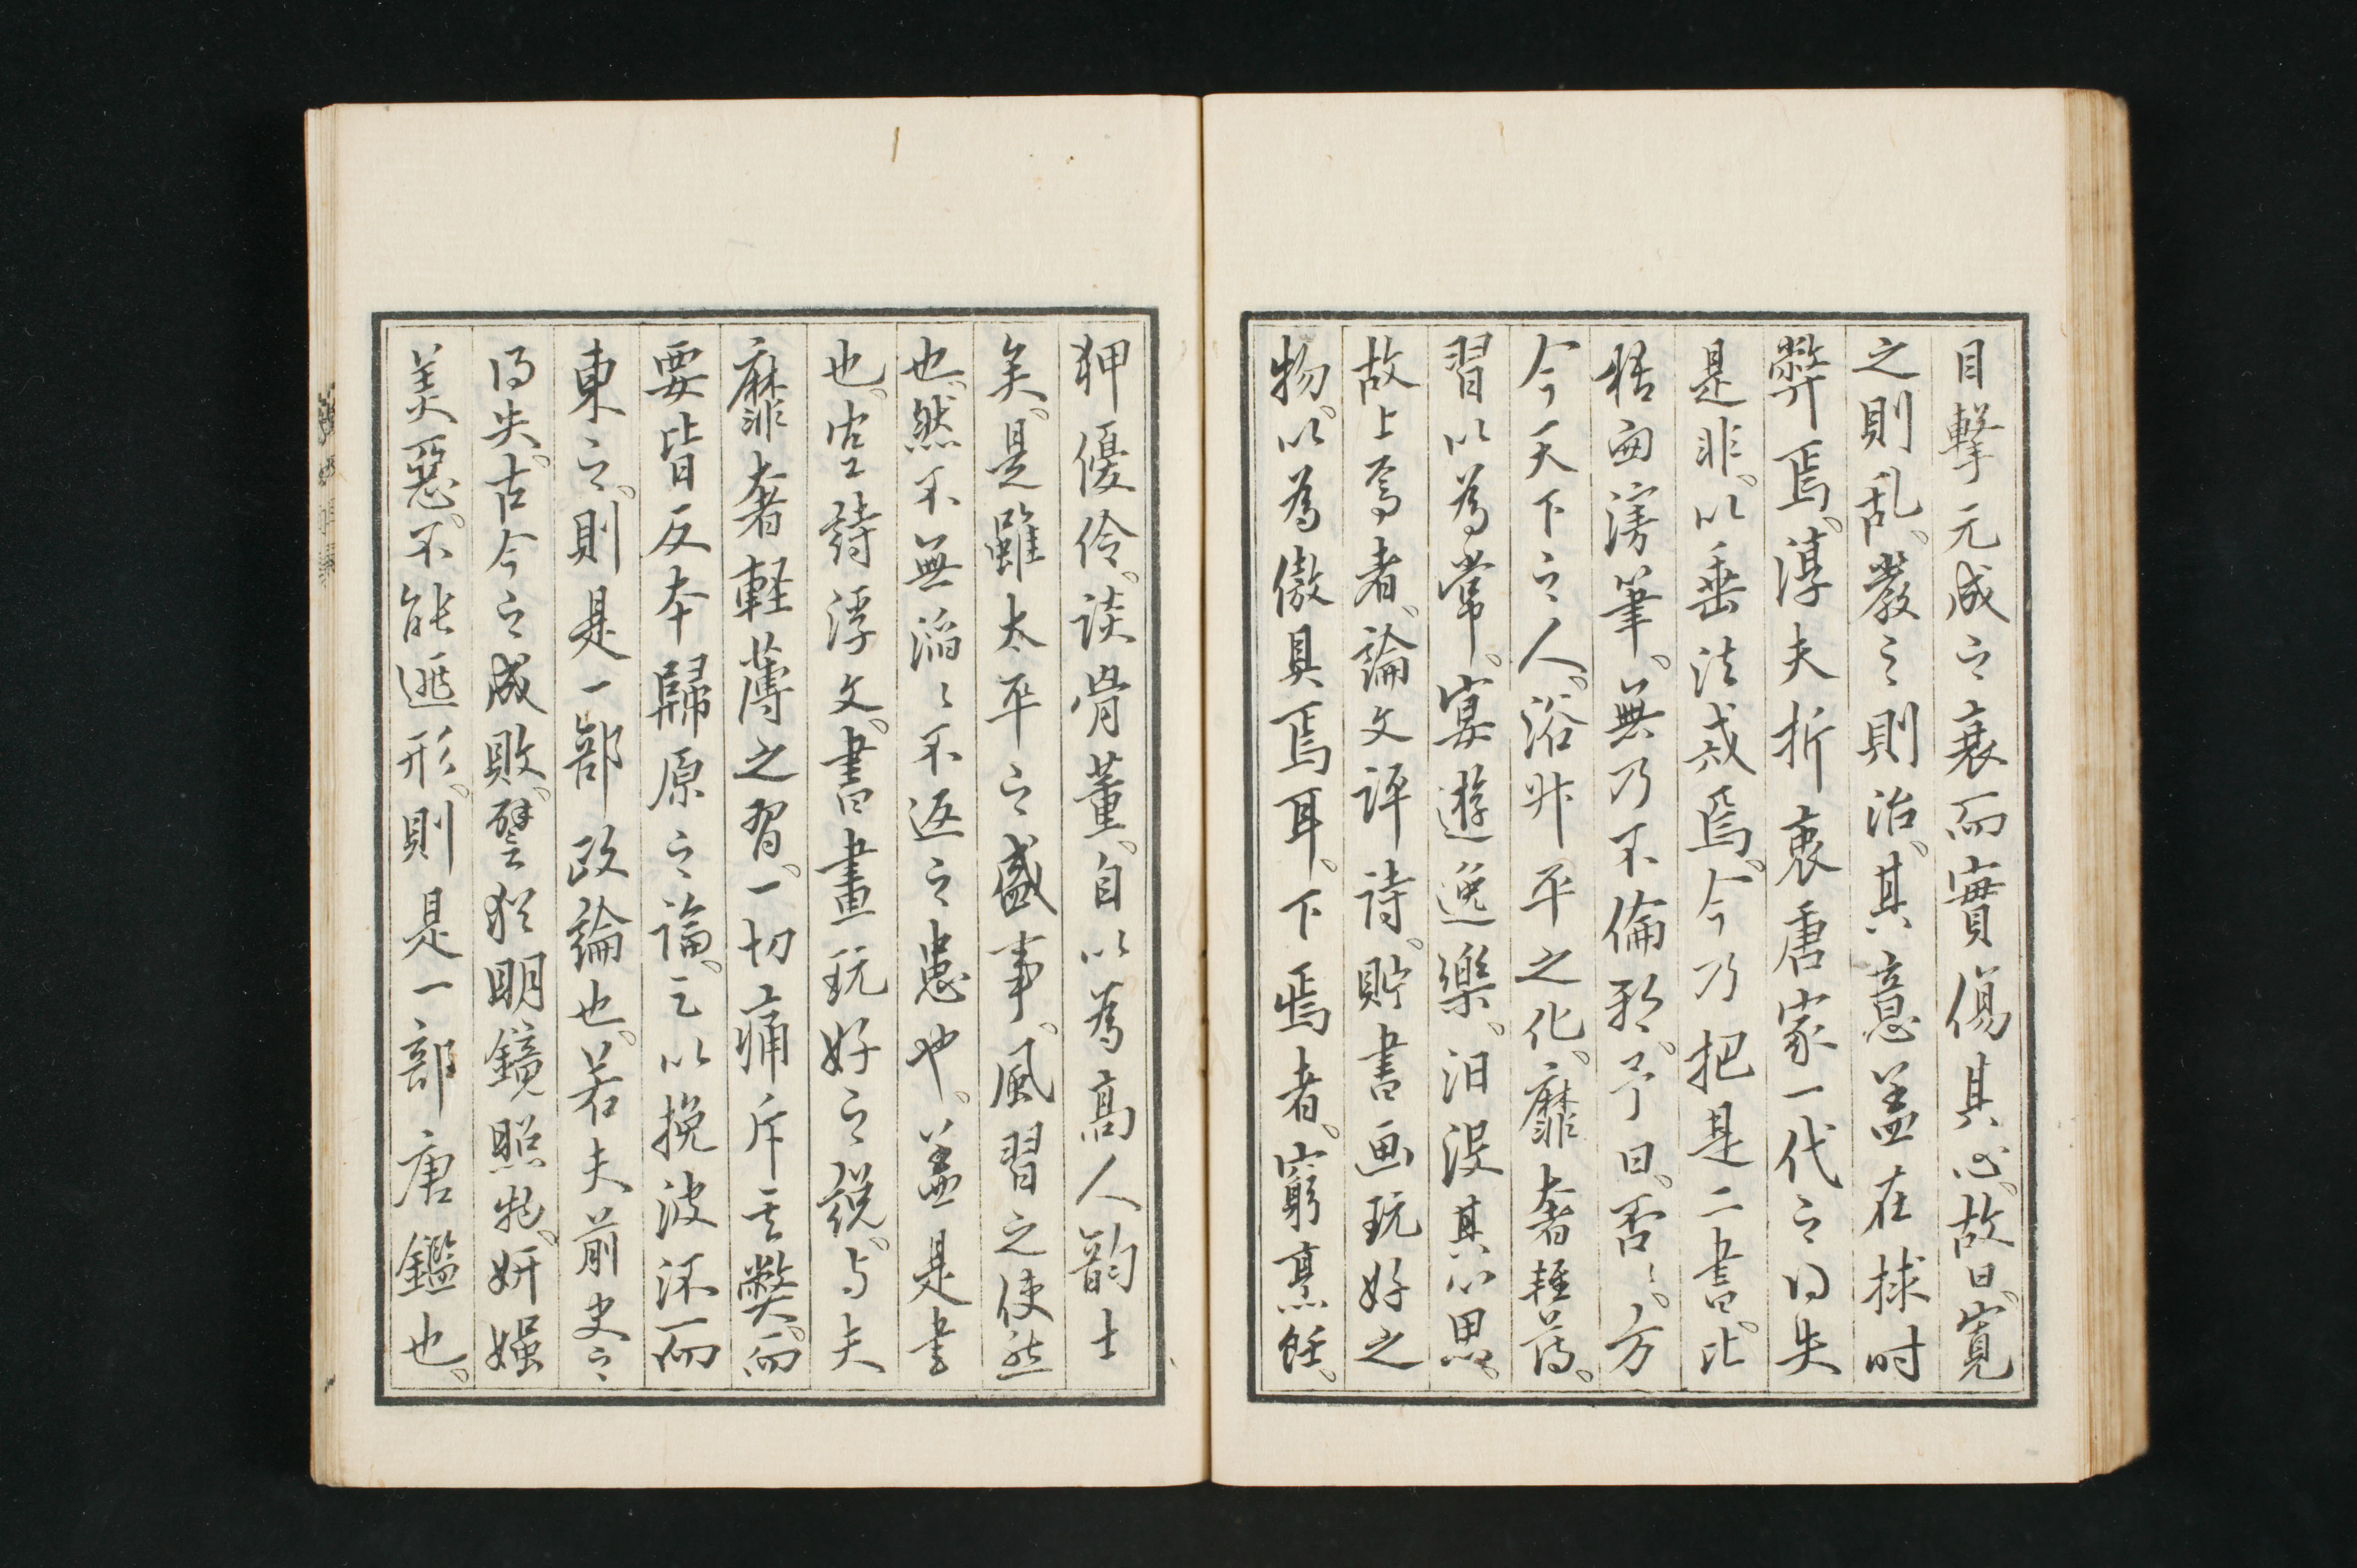 目擊元成之衰而實傷其心故曰寛
之則乱嚴之則治其意蓋在捄时
弊焉淳夫折衷唐家一代之得失
是非以垂法戒焉今乃把是二書比
稽面濡筆無乃不倫邪予曰否〻方
今天下之人浴升平之化靡奢軽薄
習以為常宴遊逸樂汨没其心思
故上焉者論文評詩貯書画玩好之
物以為傲具焉耳下焉者窮烹飪
狎優伶談骨董自以為高人韵士
矣是雖太平之盛事風習之使然
也然不無滔〻不返之患也蓋是書
也官詩浮文書畫玩好之説与夫
靡奢軽薄之習一切痛斥其弊而
要皆反本歸原之論足以挽波流而
東之則是一部政論也若夫前史之
得失古今之成敗譬猶明鏡照物妍媸
美惡不能逃形則是一部唐鑑也